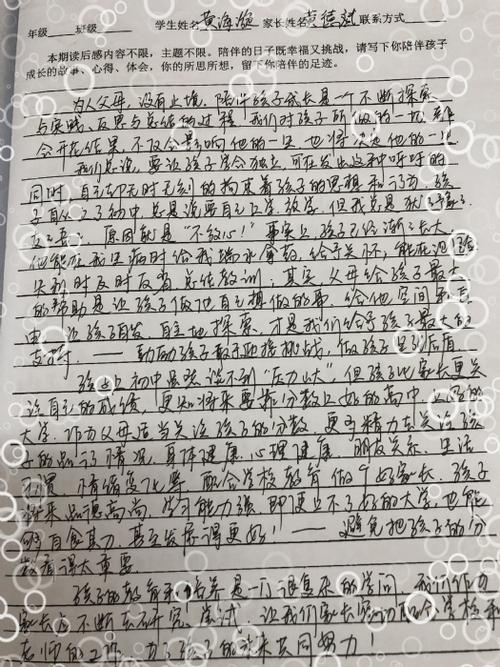 年级 班级 学生姓名 黄海 家长姓名 黄德斌 联系方式
本期读后感内容不限，主题不限。陪伴的日子既幸福又挑战，请写下你陪伴孩子
成长的故事、心得、体会，你的所思所想，留下你陪伴的足迹。
为人父母，没有止境，陪伴孩子成长是一个不断探索
与实践、反思与总结的过程，我们对孩子所做的一切，都
会开花结果，不仅会影响他的一生，也将决定他的一生。
我们总说，要让孩子学会独立，可在发出这种呼吁的
同时，自己却无时无刻的拘束着孩子的思想和行为，孩
子自从上了初中，总是说要自己上学、放学，但我总是
原因就是“不放心！”事实上孩子已经渐渐长大，
他能在我生病时给我端水拿药，给予关怀，能在
时及时反省，总结教训，其实，父母给孩子最大
的帮助是让孩子做他自己想做的事，给他空间和自
由，让孩子自发、自主地探索，才是我们给予孩子最大的
支持 —— 鼓励孩子敢于迎接挑战，做孩子坚实后盾
孩子上初中虽然谈不到“压力山大”，但孩子比家长更关
注自己的成绩，更知将来要靠分数上好的高中，
大学，作为父母适当关注孩子的分数，更多精力去关注孩
子的品行情况、身体健康、心理健康、朋友关系、生活
习惯、情绪变化等，配合学校教育做个好家长，孩子
将来品德高尚，学习能力强，即便上不了好的大学，也能
够自食其力，甚至发展得更好！—— 避免把孩子的分
数看得太重要
孩子的教育和培养是一门很复杂的学问，我们作为
家长应不断去研究、尝试，让我们家长密切配合学校和
老师的工作，为了孩子的将来共同努力！